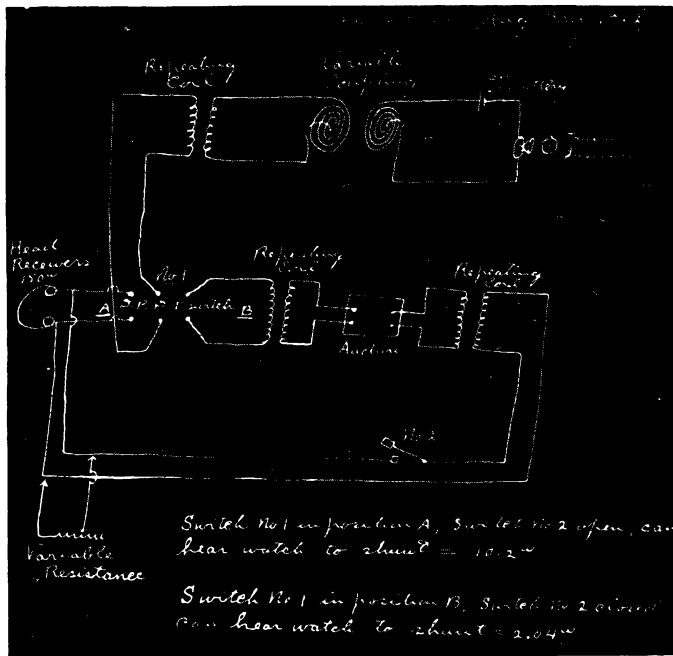 Repeating Coil
Variable Coupling
Battery
Head Receivers 150ω
No 1
A D.P.D.T. Switch B
Repeating Coil
Audion
Repeating Coil
No 2
Variable Resistance
Switch No 1 in position A, Switch No 2 open, can
hear watch to shunt = 10.2ω
Switch No 1 in position B, Switch No 2 closed
can hear watch to shunt = 2.04ω